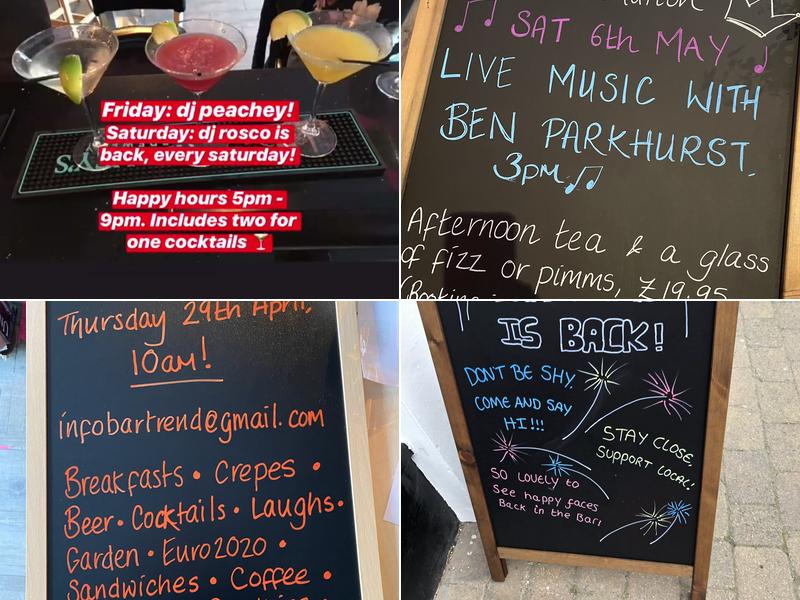 Friday: dj peachey!
Saturday: dj rosco is
back, every saturday!
Happy hours 5pm -
9pm. Includes two for
one cocktails 🍸
SAT 6th MAY
LIVE MUSIC WITH
BEN PARKHURST.
3pm
Afternoon tea & a glass
of fizz or pimms, £19.95
Thursday 29th April,
10am!
infobartrend@gmail.com
Breakfasts • Crepes •
Beer • Cocktails • Laughs •
Garden • Euro2020 •
Sandwiches • Coffee •
IS BACK!
DONT BE SHY,
COME AND SAY
HI!!!
STAY CLOSE,
SUPPORT LOCAL!
SO LOVELY to
See happy faces
Back in the Bar!